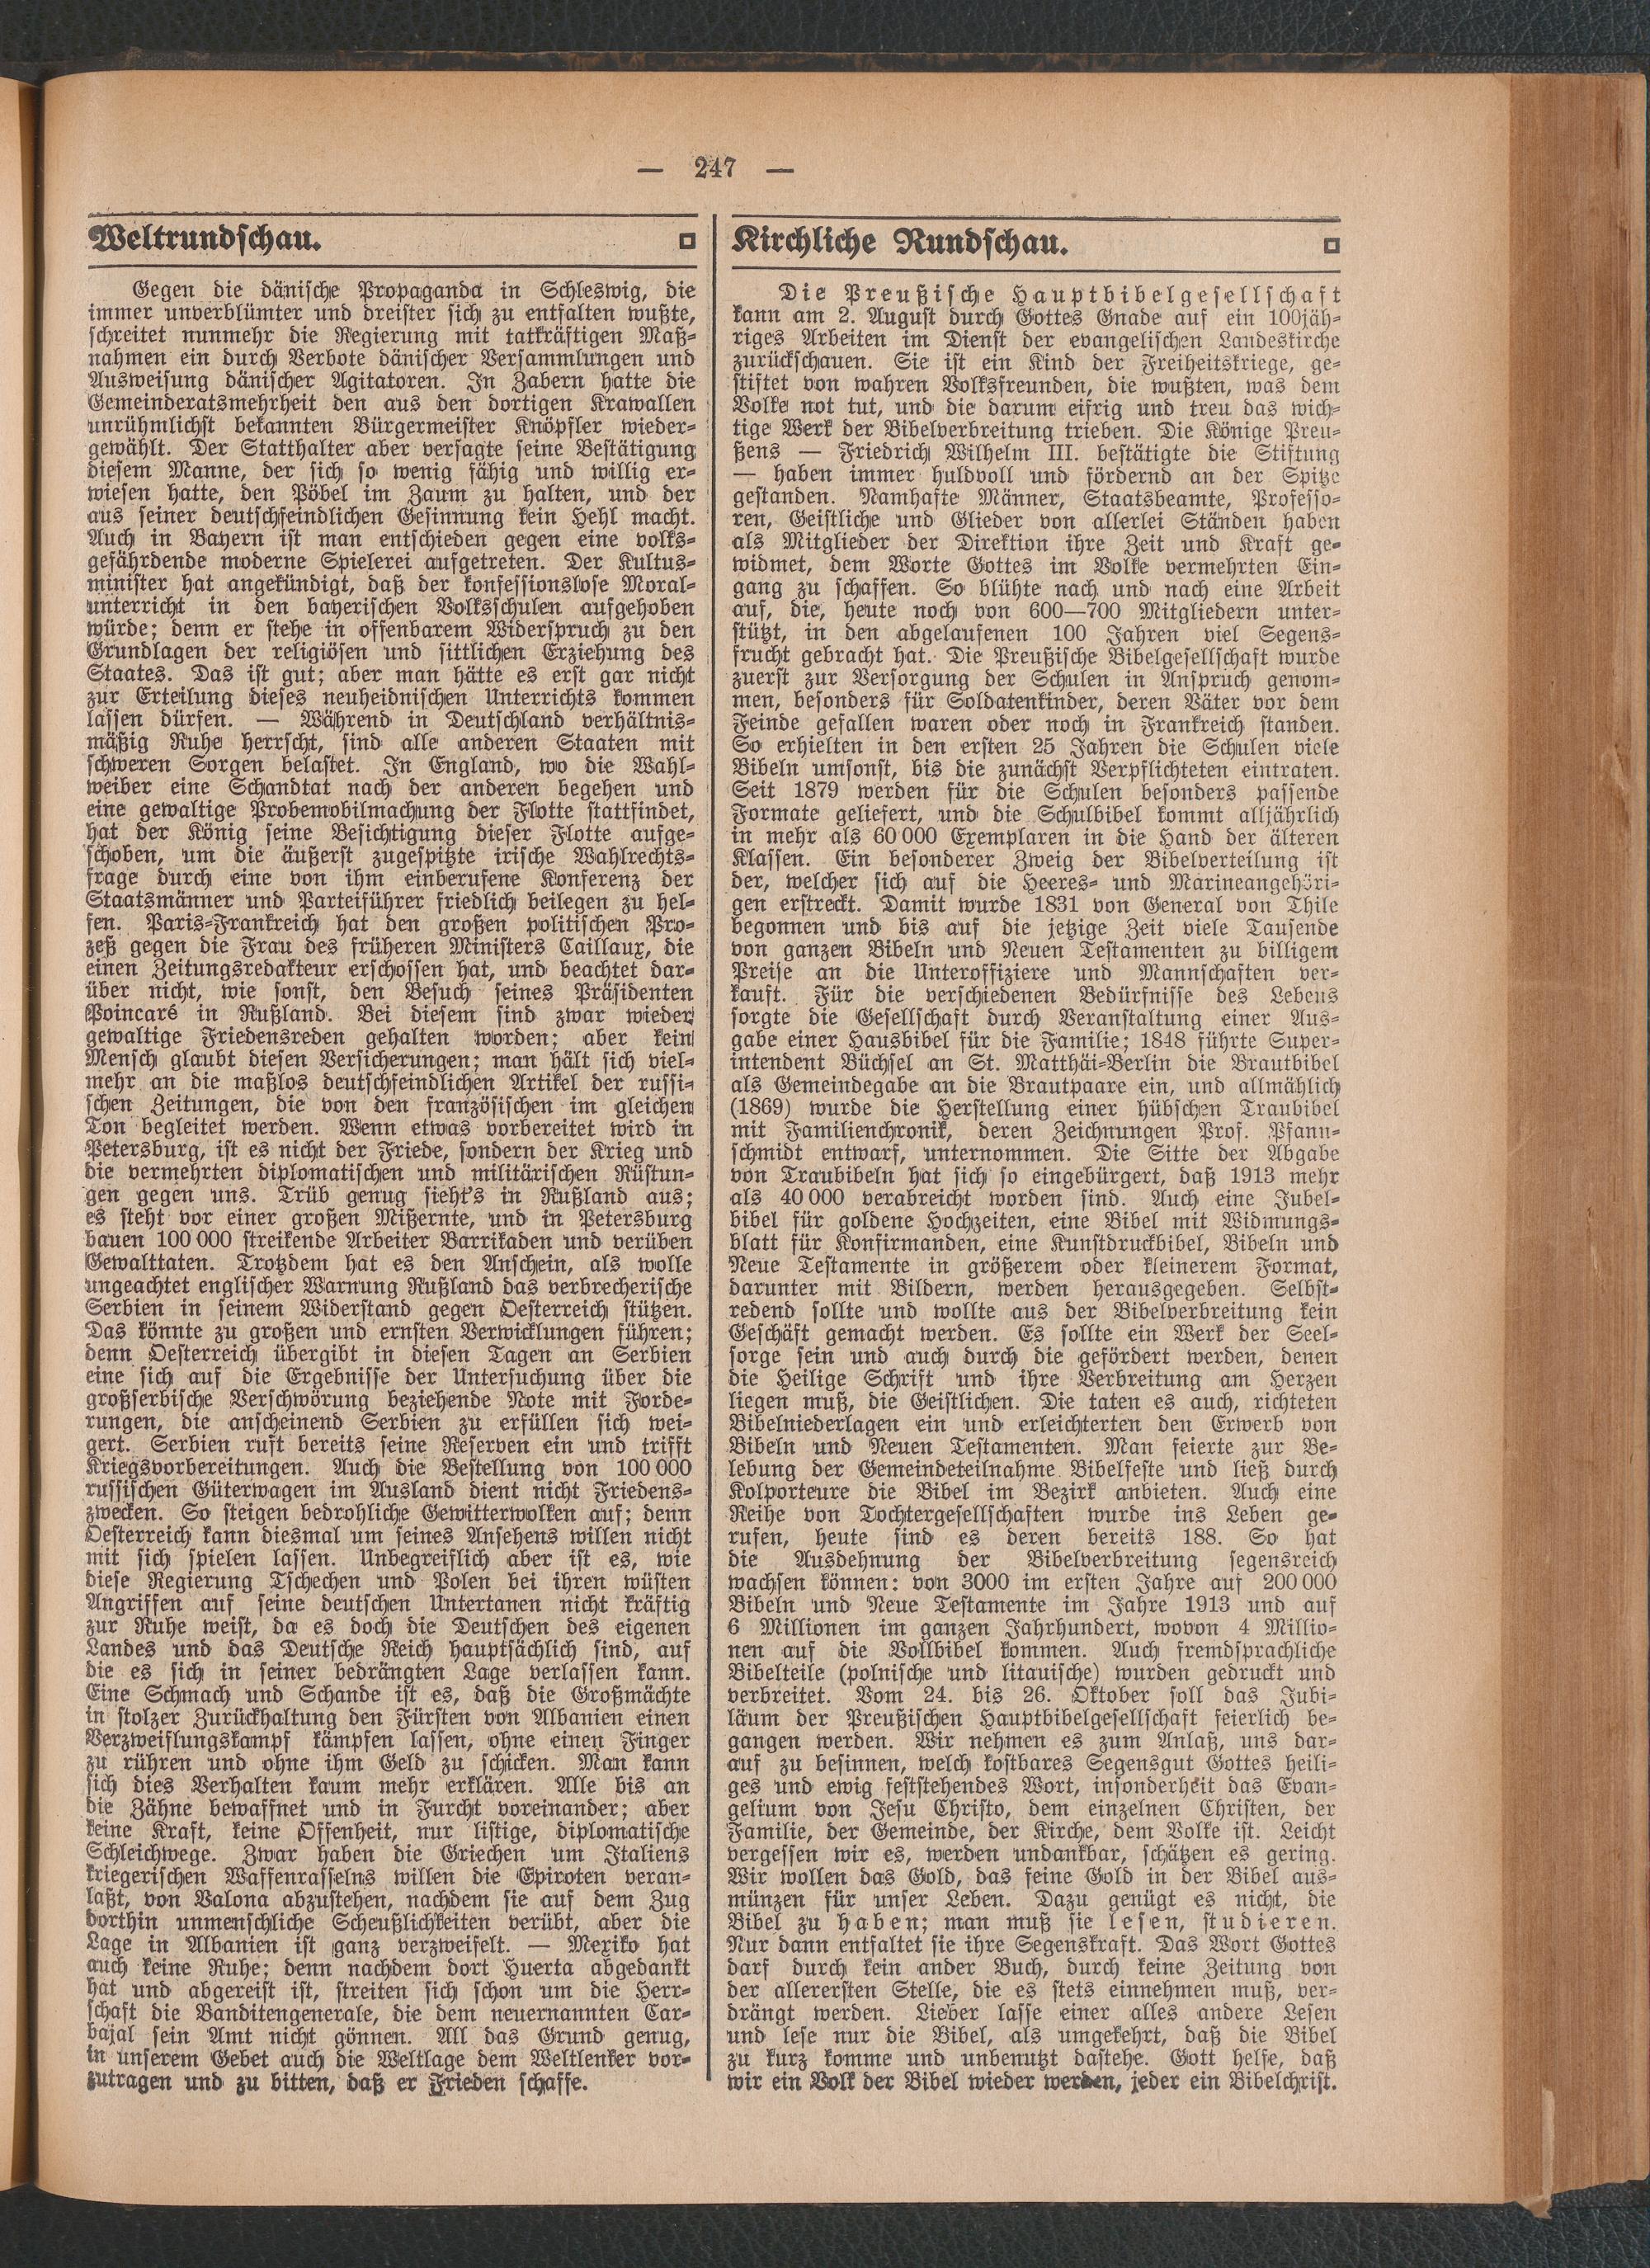 — 247 —
Weltrundschau.
Gegen die dänische Propaganda in Schleswig, die
immer unverblümter und dreister sich zu entfalten wußte,
schreitet nunmehr die Regierung mit tatkräftigen Maß-
nahmen ein durch Verbote dänischer Versammlungen und
Ausweisung dänischer Agitatoren. In Zabern hatte die
Gemeinderatsmehrheit den aus den dortigen Krawallen
unrühmlichst bekannten Bürgermeister Knöpfler wieder-
gewählt. Der Statthalter aber versagte seine Bestätigung
diesem Manne, der sich so wenig fähig und willig er-
wiesen hatte, den Pöbel im Zaum zu halten, und der
aus seiner deutschfeindlichen Gesinnung kein Hehl macht.
Auch in Bayern ist man entschieden gegen eine volks-
gefährdende moderne Spielerei aufgetreten. Der Kultus-
minister hat angekündigt, daß der konfessionslose Moral-
unterricht in den bayerischen Volksschulen aufgehoben
würde; denn er stehe in offenbarem Widerspruch zu den
Grundlagen der religiösen und sittlichen Erziehung des
Staates. Das ist gut; aber man hätte es erst gar nicht
zur Erteilung dieses neuheidnischen Unterrichts kommen
lassen dürfen. — Während in Deutschland verhältnis-
mäßig Ruhe herrscht, sind alle anderen Staaten mit
schweren Sorgen belastet. In England, wo die Wahl-
weiber eine Schandtat nach der anderen begehen und
eine gewaltige Probemobilmachung der Flotte stattfindet,
hat der König seine Besichtigung dieser Flotte aufge-
schoben, um die äußerst zugespitzte irische Wahlrechts-
frage durch eine von ihm einberufene Konferenz der
Staatsmänner und Parteiführer friedlich beilegen zu hel-
fen. Paris-Frankreich hat den großen politischen Pro-
zeß gegen die Frau des früheren Ministers Caillaux, die
einen Zeitungsredakteur erschossen hat, und beachtet dar-
über nicht, wie sonst, den Besuch seines Präsidenten
Poincaré in Rußland. Bei diesem sind zwar wieder
gewaltige Friedensreden gehalten worden; aber kein
Mensch glaubt diesen Versicherungen; man hält sich viel-
mehr an die maßlos deutschfeindlichen Artikel der russi-
schen Zeitungen, die von den französischen im gleichen
Ton begleitet werden. Wenn etwas vorbereitet wird in
Petersburg, ist es nicht der Friede, sondern der Krieg und
die vermehrten diplomatischen und militärischen Rüstun-
gen gegen uns. Trüb genug sieht's in Rußland aus;
es steht vor einer großen Mißernte, und in Petersburg
bauen 100 000 streikende Arbeiter Barrikaden und verüben
Gewalttaten. Trotzdem hat es den Anschein, als wolle
ungeachtet englischer Warnung Rußland das verbrecherische
Serbien in seinem Widerstand gegen Oesterreich stützen.
Das könnte zu großen und ernsten Verwicklungen führen;
denn Oesterreich übergibt in diesen Tagen an Serbien
eine sich auf die Ergebnisse der Untersuchung über die
großserbische Verschwörung beziehende Note mit Forde-
rungen, die anscheinend Serbien zu erfüllen sich wei-
gert. Serbien ruft bereits seine Reserven ein und trifft
Kriegsvorbereitungen. Auch die Bestellung von 100 000
russischen Güterwagen im Ausland dient nicht Friedens-
zwecken. So steigen bedrohliche Gewitterwolken auf; denn
Oesterreich kann diesmal um seines Ansehens willen nicht
mit sich spielen lassen. Unbegreiflich aber ist es, wie
diese Regierung Tschechen und Polen bei ihren wüsten
Angriffen auf seine deutschen Untertanen nicht kräftig
zur Ruhe weist, da es doch die Deutschen des eigenen
Landes und das Deutsche Reich hauptsächlich sind, auf
die es sich in seiner bedrängten Lage verlassen kann.
Eine Schmach und Schande ist es, daß die Großmächte
in stolzer Zurückhaltung den Fürsten von Albanien einen
Verzweiflungskampf kämpfen lassen, ohne einen Finger
zu rühren und ohne ihm Geld zu schicken. Man kann
sich dies Verhalten kaum mehr erklären. Alle bis an
die Zähne bewaffnet und in Furcht voreinander; aber
keine Kraft, keine Offenheit, nur listige, diplomatische
Schleichwege. Zwar haben die Griechen um Italiens
kriegerischen Waffenrasselns willen die Epiroten veran-
laßt, von Valona abzustehen, nachdem sie auf dem Zug
dorthin unmenschliche Scheußlichkeiten verübt, aber die
Lage in Albanien ist ganz verzweifelt. — Mexiko hat
auch keine Ruhe; denn nachdem dort Huerta abgedankt
hat und abgereist ist, streiten sich schon um die Herr-
schaft die Banditengenerale, die dem neuernannten Car-
bajal sein Amt nicht gönnen. All das Grund genug,
in unserem Gebet auch die Weltlage dem Weltlenker vor-
zutragen und zu bitten, daß er Frieden schaffe.
Kirchliche Rundschau.
Die Preußische Hauptbibelgesellschaft
kann am 2. August durch Gottes Gnade auf ein 100jäh-
riges Arbeiten im Dienst der evangelischen Landeskirche
zurückschauen. Sie ist ein Kind der Freiheitskriege, ge-
stiftet von wahren Volksfreunden, die wußten, was dem
Volke not tut, und die darum eifrig und treu das wich-
tige Werk der Bibelverbreitung trieben. Die Könige Preu-
ßens — Friedrich Wilhelm III. bestätigte die Stiftung
— haben immer huldvoll und fördernd an der Spitze
gestanden. Namhafte Männer, Staatsbeamte, Professo-
ren, Geistliche und Glieder von allerlei Ständen haben
als Mitglieder der Direktion ihre Zeit und Kraft ge-
widmet, dem Worte Gottes im Volke vermehrten Ein-
gang zu schaffen. So blühte nach und nach eine Arbeit
auf, die, heute noch von 600—700 Mitgliedern unter-
stützt, in den abgelaufenen 100 Jahren viel Segens-
frucht gebracht hat. Die Preußische Bibelgesellschaft wurde
zuerst zur Versorgung der Schulen in Anspruch genom-
men, besonders für Soldatenkinder, deren Väter vor dem
Feinde gefallen waren oder noch in Frankreich standen.
So erhielten in den ersten 25 Jahren die Schulen viele
Bibeln umsonst, bis die zunächst Verpflichteten eintraten.
Seit 1879 werden für die Schulen besonders passende
Formate geliefert, und die Schulbibel kommt alljährlich
in mehr als 60 000 Exemplaren in die Hand der älteren
Klassen. Ein besonderer Zweig der Bibelverteilung ist
der, welcher sich auf die Heeres- und Marineangehöri-
gen erstreckt. Damit wurde 1831 von General von Thile
begonnen und bis auf die jetzige Zeit viele Tausende
von ganzen Bibeln und Neuen Testamenten zu billigem
Preise an die Unteroffiziere und Mannschaften ver-
kauft. Für die verschiedenen Bedürfnisse des Lebens
sorgte die Gesellschaft durch Veranstaltung einer Aus-
gabe einer Hausbibel für die Familie; 1848 führte Super-
intendent Büchsel an St. Matthäi-Berlin die Brautbibel
als Gemeindegabe an die Brautpaare ein, und allmählich
(1869) wurde die Herstellung einer hübschen Traubibel
mit Familienchronik, deren Zeichnungen Prof. Pfann-
schmidt entwarf, unternommen. Die Sitte der Abgabe
von Traubibeln hat sich so eingebürgert, daß 1913 mehr
als 40 000 verabreicht worden sind. Auch eine Jubel-
bibel für goldene Hochzeiten, eine Bibel mit Widmungs-
blatt für Konfirmanden, eine Kunstdruckbibel, Bibeln und
Neue Testamente in größerem oder kleinerem Format,
darunter mit Bildern, werden herausgegeben. Selbst-
redend sollte und wollte aus der Bibelverbreitung kein
Geschäft gemacht werden. Es sollte ein Werk der Seel-
sorge sein und auch durch die gefördert werden, denen
die Heilige Schrift und ihre Verbreitung am Herzen
liegen muß, die Geistlichen. Die taten es auch, richteten
Bibelniederlagen ein und erleichterten den Erwerb von
Bibeln und Neuen Testamenten. Man feierte zur Be-
lebung der Gemeindeteilnahme Bibelfeste und ließ durch
Kolporteure die Bibel im Bezirk anbieten. Auch eine
Reihe von Tochtergesellschaften wurde ins Leben ge-
rufen, heute sind es deren bereits 188. So hat
die Ausdehnung der Bibelverbreitung segensreich
wachsen können: von 3000 im ersten Jahre auf 200 000
Bibeln und Neue Testamente im Jahre 1913 und auf
6 Millionen im ganzen Jahrhundert, wovon 4 Millio-
nen auf die Vollbibel kommen. Auch fremdsprachliche
Bibelteile (polnische und litauische) wurden gedruckt und
verbreitet. Vom 24. bis 26. Oktober soll das Jubi-
läum der Preußischen Hauptbibelgesellschaft feierlich be-
gangen werden. Wir nehmen es zum Anlaß, uns dar-
auf zu besinnen, welch kostbares Segensgut Gottes heili-
ges und ewig feststehendes Wort, insonderheit das Evan-
gelium von Jesu Christo, dem einzelnen Christen, der
Familie, der Gemeinde, der Kirche, dem Volke ist. Leicht
vergessen wir es, werden undankbar, schätzen es gering.
Wir wollen das Gold, das feine Gold in der Bibel aus-
münzen für unser Leben. Dazu genügt es nicht, die
Bibel zu haben; man muß sie lesen, studieren.
Nur dann entfaltet sie ihre Segenskraft. Das Wort Gottes
darf durch kein ander Buch, durch keine Zeitung von
der allerersten Stelle, die es stets einnehmen muß, ver-
drängt werden. Lieber lasse einer alles andere Lesen
und lese nur die Bibel, als umgekehrt, daß die Bibel
zu kurz komme und unbenutzt dastehe. Gott helfe, daß
wir ein Volk der Bibel wieder werden, jeder ein Bibelchrist.